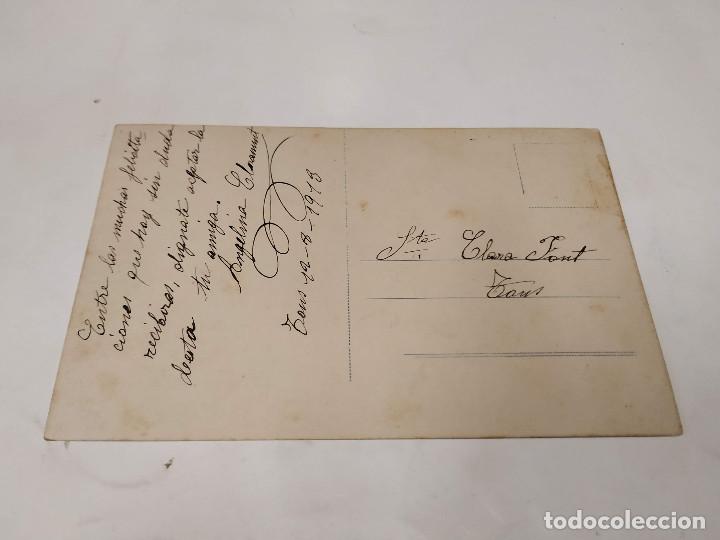 Entre las muchas felicita
ciones que hoy sin duda
recibiras, dignate aceptar la
desta tu amiga.
Angelina Claramunt
Tous 12-8-1913
Sta Clara Font
Tous
todocoleccion
todocoleccion.net